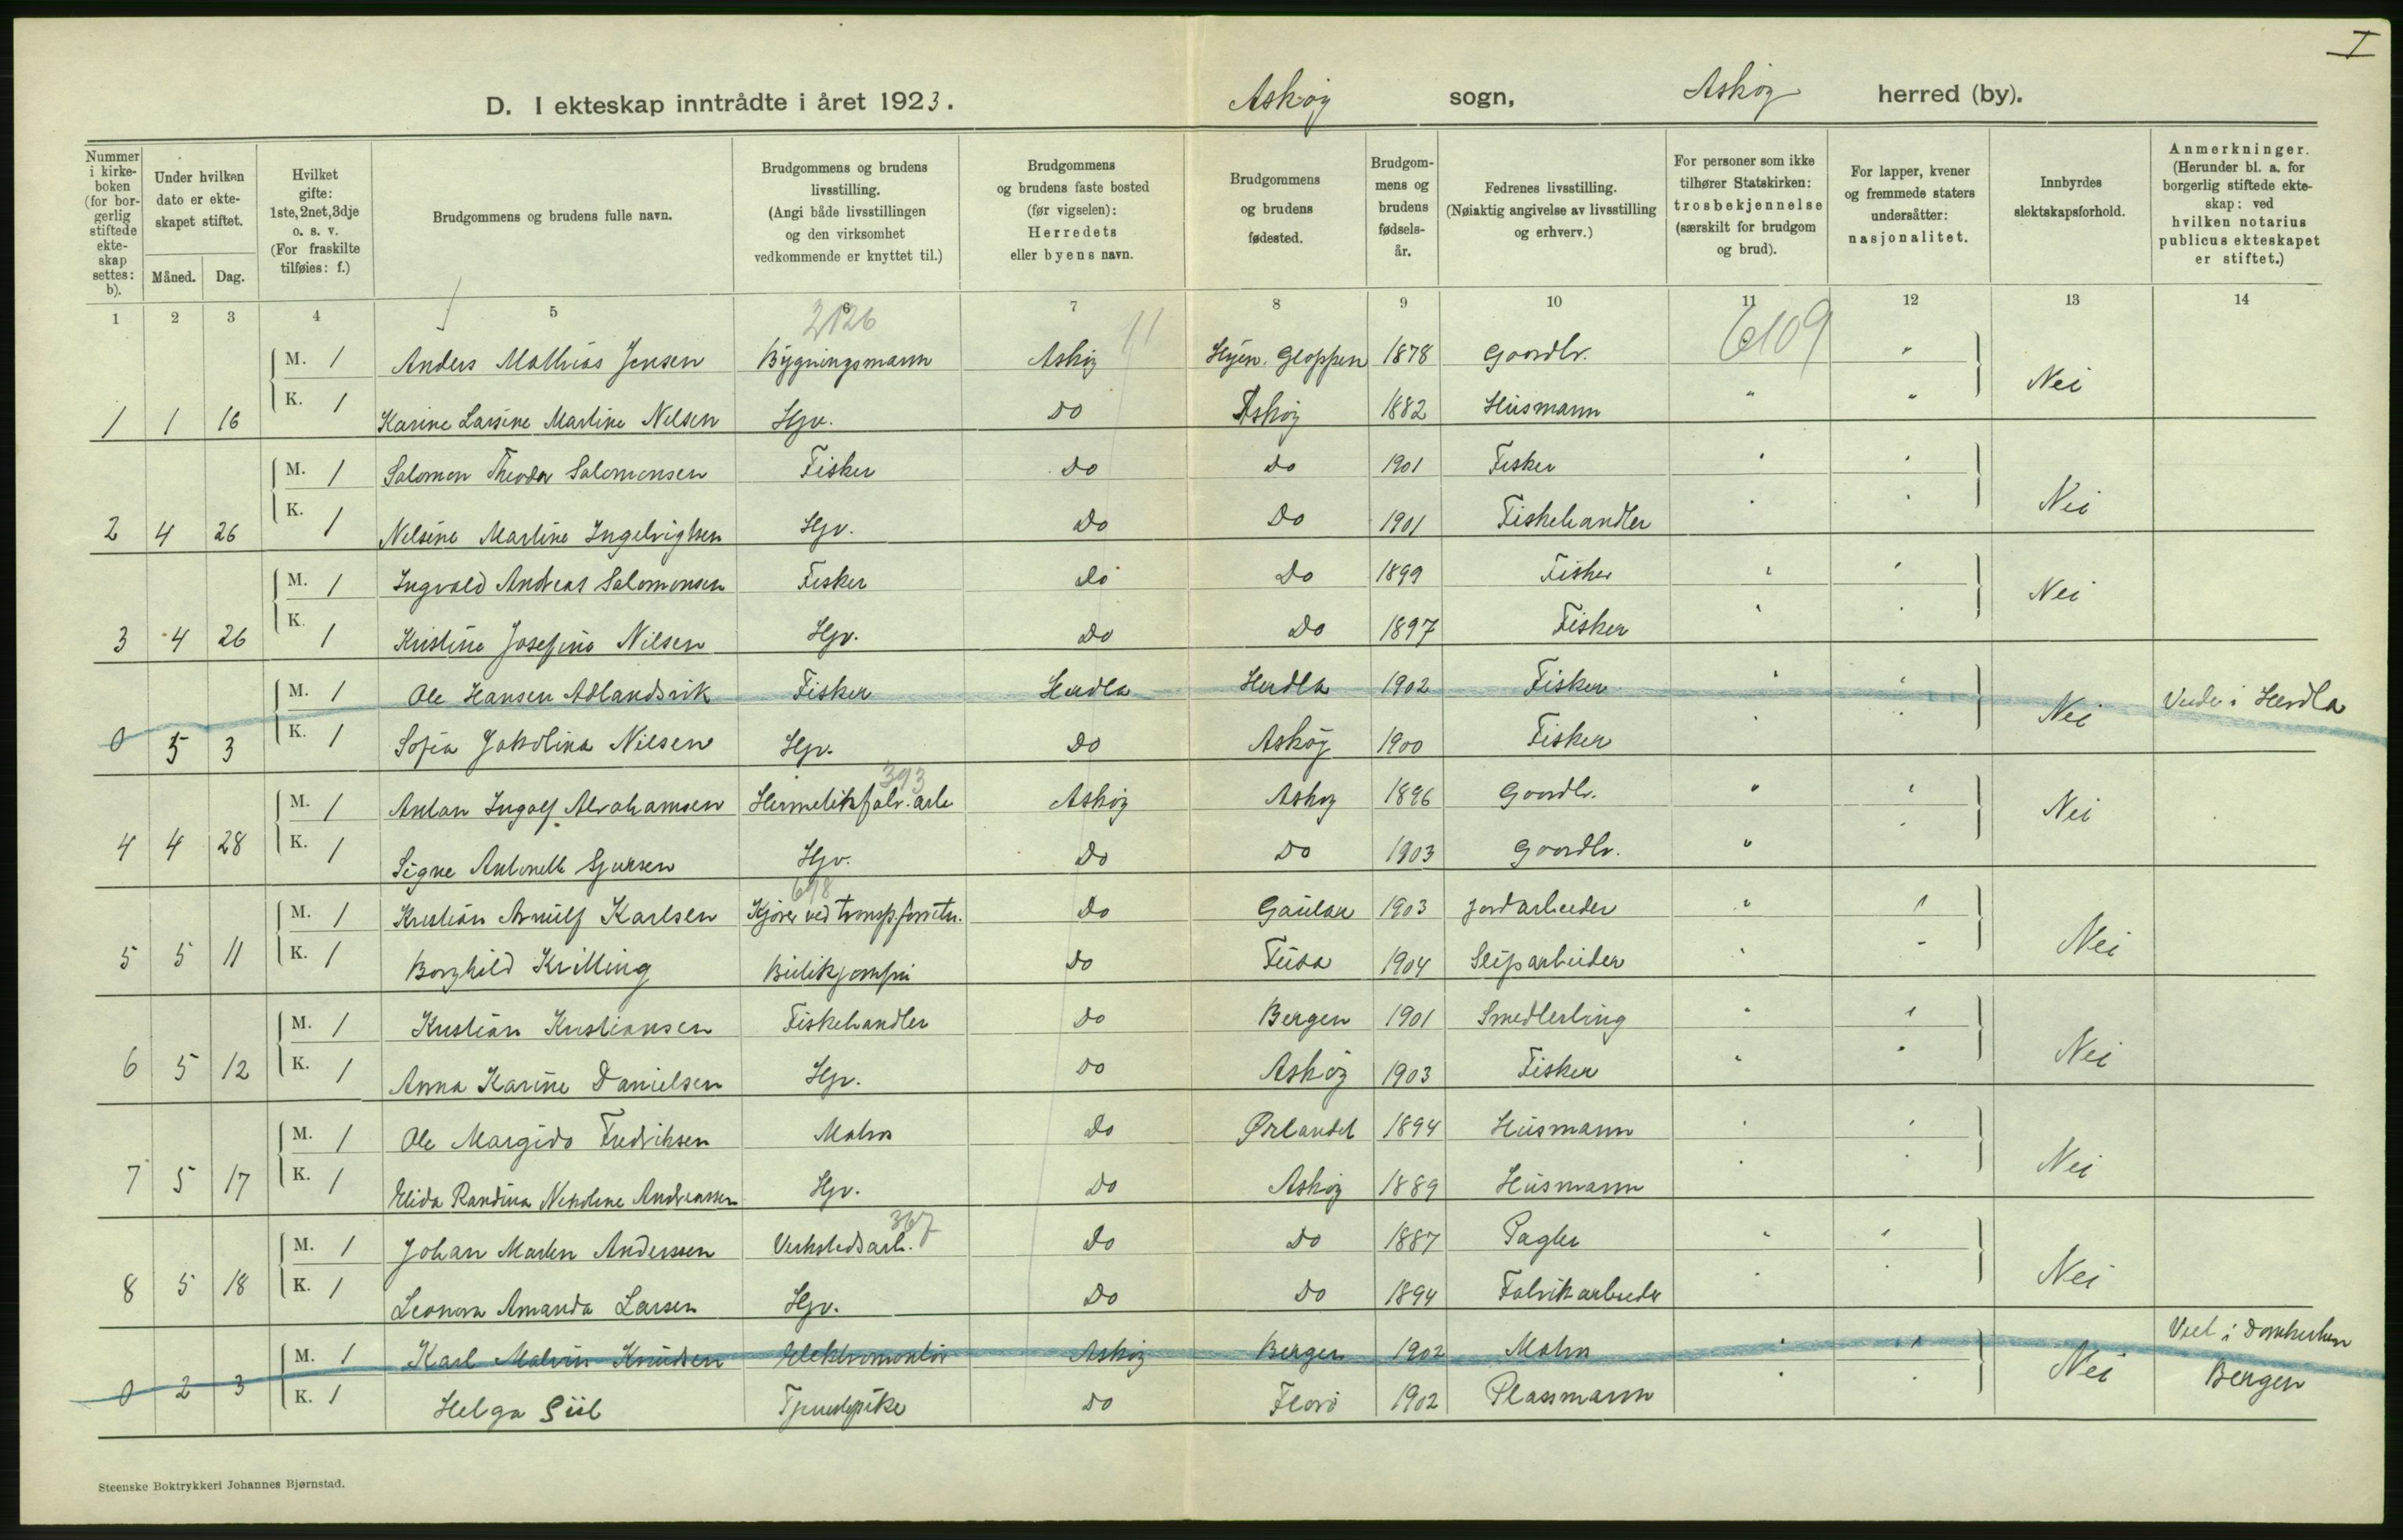 I
D. I ekteskap inntrådte i året 1923. Askøy sogn, Askøy herred (by).
Nummer i kirkeboken (for borgerlig stiftede ekteskap settes: b).
Under hvilken dato er ekteskapet stiftet.
Måned. Dag.
Hvilket gifte: 1ste, 2net, 3dje o. s. v. (For fraskilte tilføies: f.)
Brudgommens og brudens fulle navn.
Brudgommens og brudens livsstilling. (Angi både livsstillingen og den virksomhet vedkommende er knyttet til.)
Brudgommens og brudens faste bosted (før vigselen): Herredets eller byens navn.
Brudgommens og brudens fødested.
Brudgommens og brudens fødselsår.
Fedrenes livsstilling. (Nøiaktig angivelse av livsstilling og erhverv.)
For personer som ikke tilhører Statskirken: trosbekjennelse (særskilt for brudgom og brud).
For lapper, kvener og fremmede staters undersåtter: nasjonalitet.
Innbyrdes slektskapsforhold.
Anmerkninger. (Herunder bl. a. for borgerlig stiftede ekteskap: ved hvilken notarius publicus ekteskapet er stiftet.)
1 2 3 4 5 6 7 8 9 10 11 12 13 14
2126 11 6109
M. 1 Anders Mathias Jensen Bygningsmann Askøy Hyen. Gloppen 1878 Gaardbr. "
1 1 16 K. 1 Karine Larsine Martine Nilsen Hjv. Do Askøy 1882 Husmann " " Nei
M. 1 Salomon Theodor Salomonsen Fisker Do Do 1901 Fisker " "
2 4 26 K. 1 Nelsine Martine Ingebrigtsen Hjv. Do Do 1901 Fiskehandler " " Nei
M. 1 Ingvald Andreas Salomonsen Fisker Do Do 1899 Fisker " "
3 4 26 K. 1 Kristine Josefine Nilsen Hjv. Do Do 1897 Fisker " " Nei
M. 1 Ole Hansen Ådlandsvik Fisker Herdla Herdla 1902 Fisker " " i Herdla
0 5 3 K. 1 Sofia Jakolina Nilsen Hjv. Do Askøy 1900 Fisker " " Nei
393
M. 1 Anton Ingolf Abrahamsen Hermetikfabr. arb Askøy Askøy 1896 Gaardbr. " "
4 4 28 K. 1 Signe Antonette Hjv. Do Do 1903 Gaardbr. " " Nei
698
M. 1 Kristian Arnulf Karlsen Kjører ved transp.forretn. Do Gaular 1903 Jordarbeider " "
5 5 11 K. 1 Borghild Krilling Butikjomfru Do Fusa 1904 Sliparbeider " " Nei
M. 1 Kristian Kristiansen Fiskehandler Do Bergen 1901 Smedlerling " "
6 5 12 K. 1 Anna Karine Danielsen Hjv. Do Askøy 1903 Fisker " " Nei
M. 1 Ole Margido Fredriksen Matros Do Ørlandet 1894 Husmann " "
7 5 17 K. 1 Elida Randina Nikoline Andreassen Hjv. Do Askøy 1889 Husmann " " Nei
367
M. 1 Johan Martin Anderssen Verkstedsarb. Do Do 1887 " "
8 5 18 K. 1 Leonora Amanda Larsen Hjv. Do Do 1894 Fabrikarbeider " " Nei
M. 1 Karl Malvin Knudsen Elektromontør Askøy Bergen 1902 Matros " " Viet i Domkirken
0 2 3 K. 1 Helga Tjenestepike Do Florø 1902 Plassmann " " Nei Bergen
Steenske Boktrykkeri Johannes Bjørnstad.